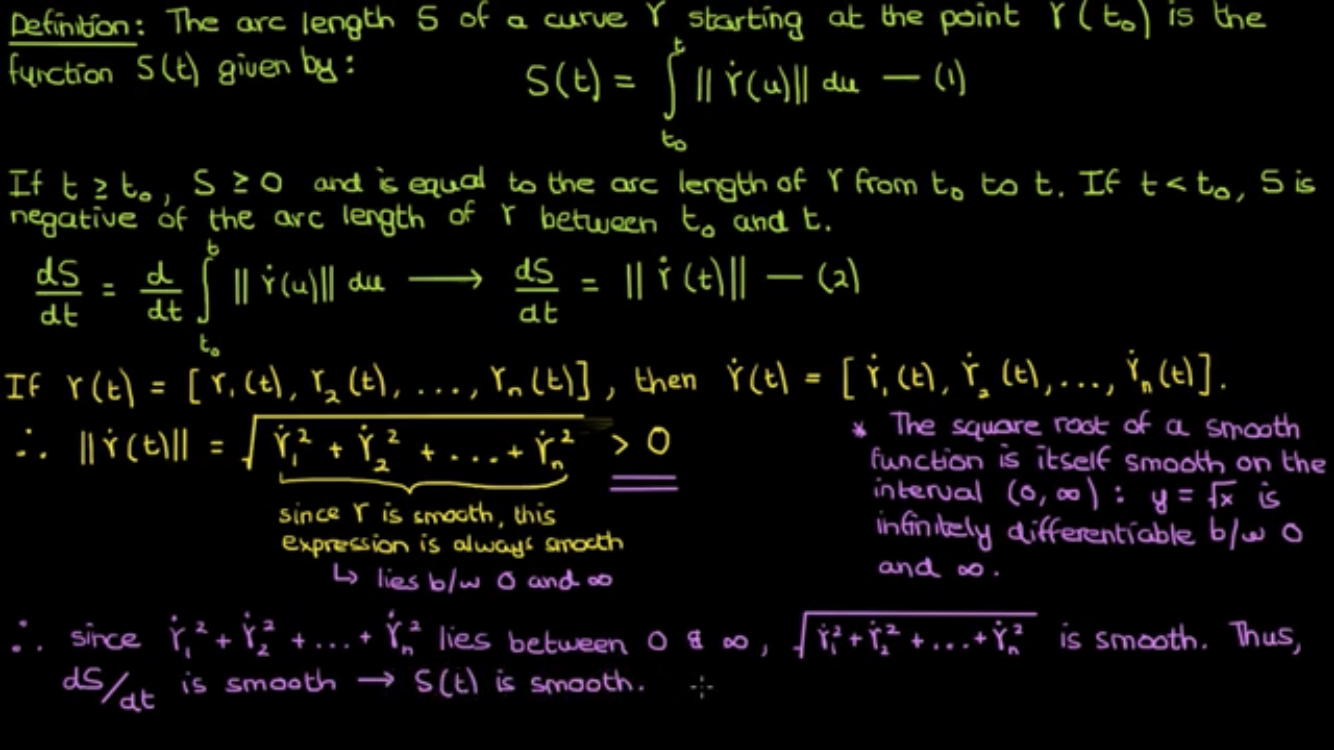 Definition: The arc length S of a curve r starting at the point r(t₀) is the
function S(t) given by: S(t) = ∫_{t₀}^{t} ||ṙ(u)|| du — (1)
If t ≥ t₀, S ≥ 0 and is equal to the arc length of r from t₀ to t. If t < t₀, S is
negative of the arc length of r between t₀ and t.
dS/dt = d/dt ∫_{t₀}^{t} ||ṙ(u)|| du ⟶ dS/dt = ||ṙ(t)|| — (2)
If r(t) = [r₁(t), r₂(t), ..., rₙ(t)], then ṙ(t) = [ṙ₁(t), ṙ₂(t), ..., ṙₙ(t)].
∴ ||ṙ(t)|| = √(ṙ₁² + ṙ₂² + ... + ṙₙ²) > 0
since r is smooth, this
expression is always smooth
↳ lies b/w 0 and ∞
* The square root of a smooth
function is itself smooth on the
interval (0, ∞) : y = √x is
infinitely differentiable b/w 0
and ∞.
∴ since ṙ₁² + ṙ₂² + ... + ṙₙ² lies between 0 & ∞, √(ṙ₁² + ṙ₂² + ... + ṙₙ²) is smooth. Thus,
dS/dt is smooth → S(t) is smooth.